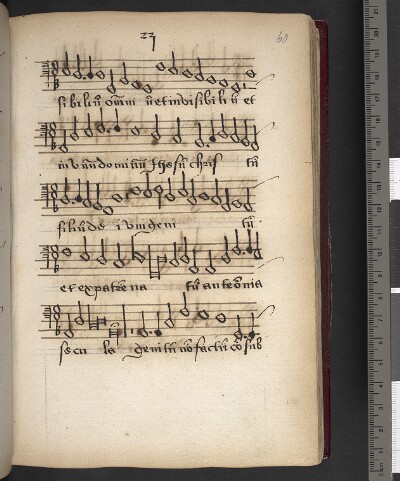 60
sibiliū om̄ni ū et invisibili ū et
in vnū dominū Ihesū chris tū
filiū de i vnigeni tū
et ex patre na tū ante om̄ia
secu la genitū nō factū cō sub